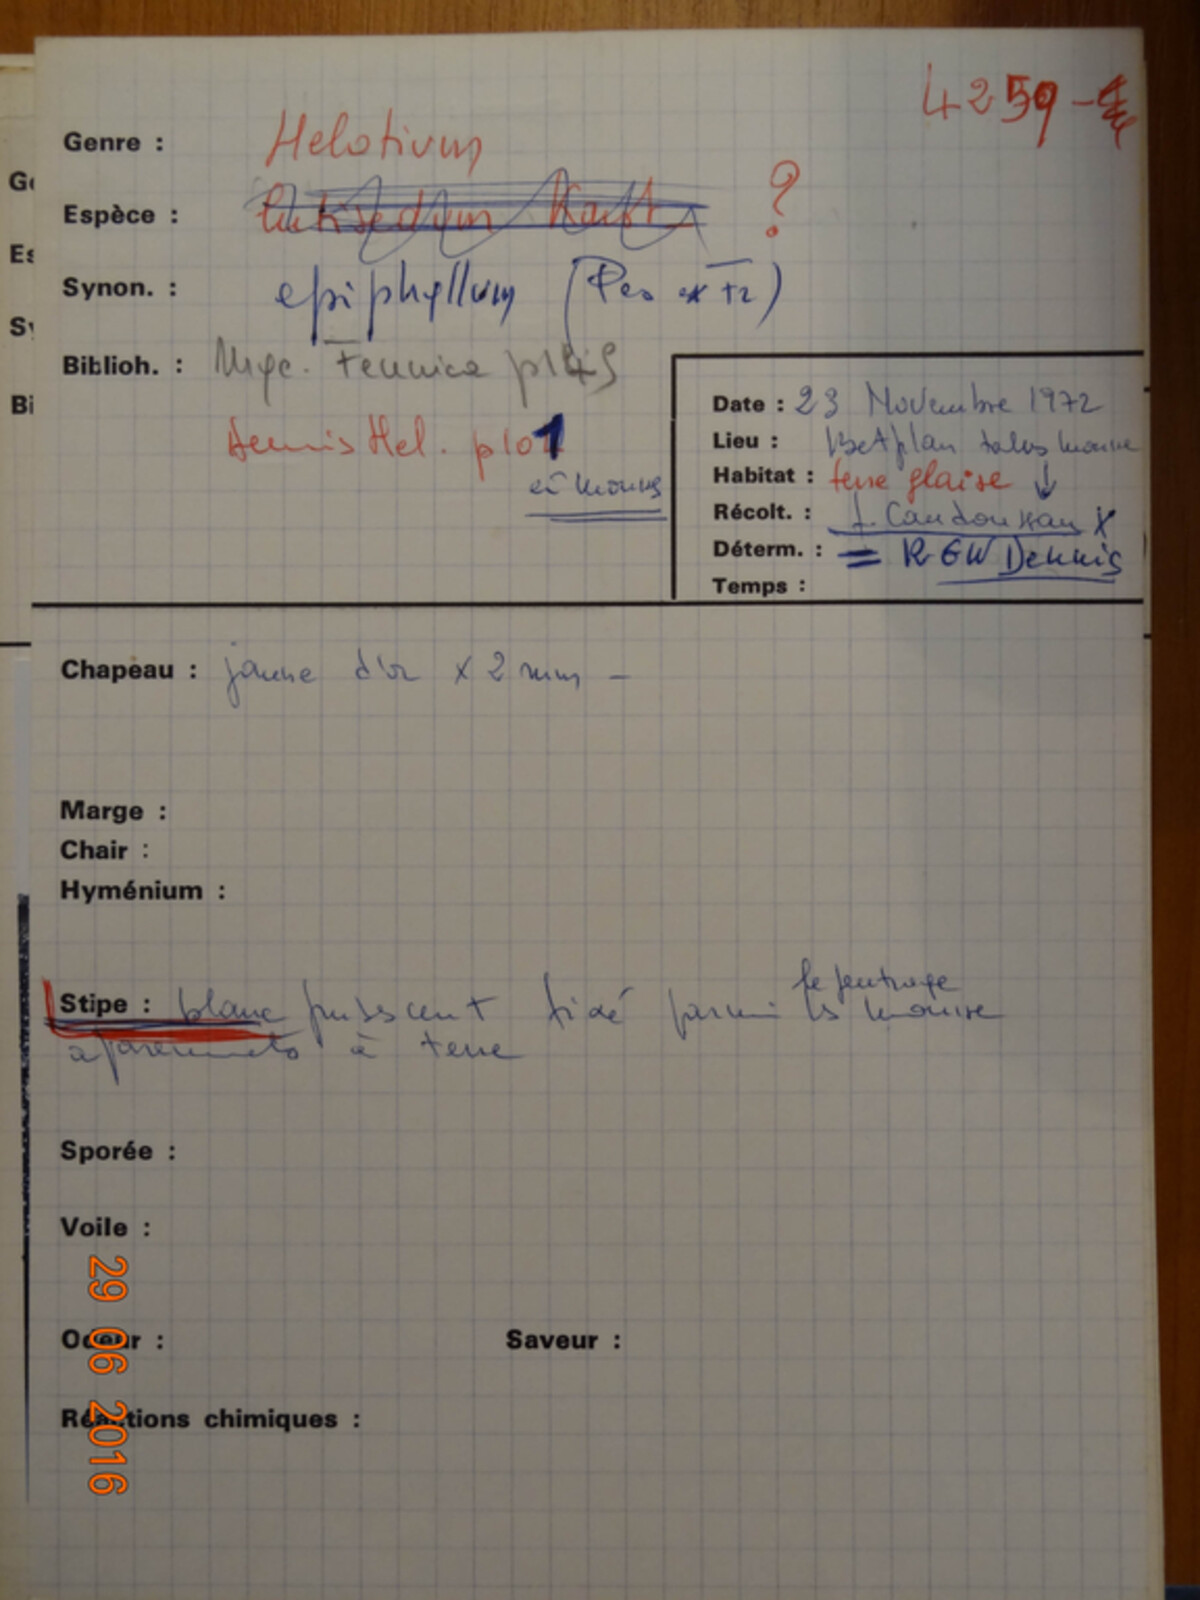 4259
Genre : Helotium
Espèce : ?
Synon. : epiphyllum (Pers ex Fr)
Biblioh. : Myc. Fennica p145
Dennis Hel. p 101
Date : 23 Novembre 1972
Lieu : Betplan talus mousse
Habitat : terre glaise ↓
Récolt. : J. Candoussau X
Déterm. : = R GW Dennis
Temps :
Chapeau : jaune d'or x 2 mm -
Marge :
Chair :
Hyménium :
le feutrage
Stipe : blanc pubescent fixé parmi mousse
à terre
Sporée :
Voile :
Odeur : Saveur :
Réactions chimiques :
29 06 2016
Bi